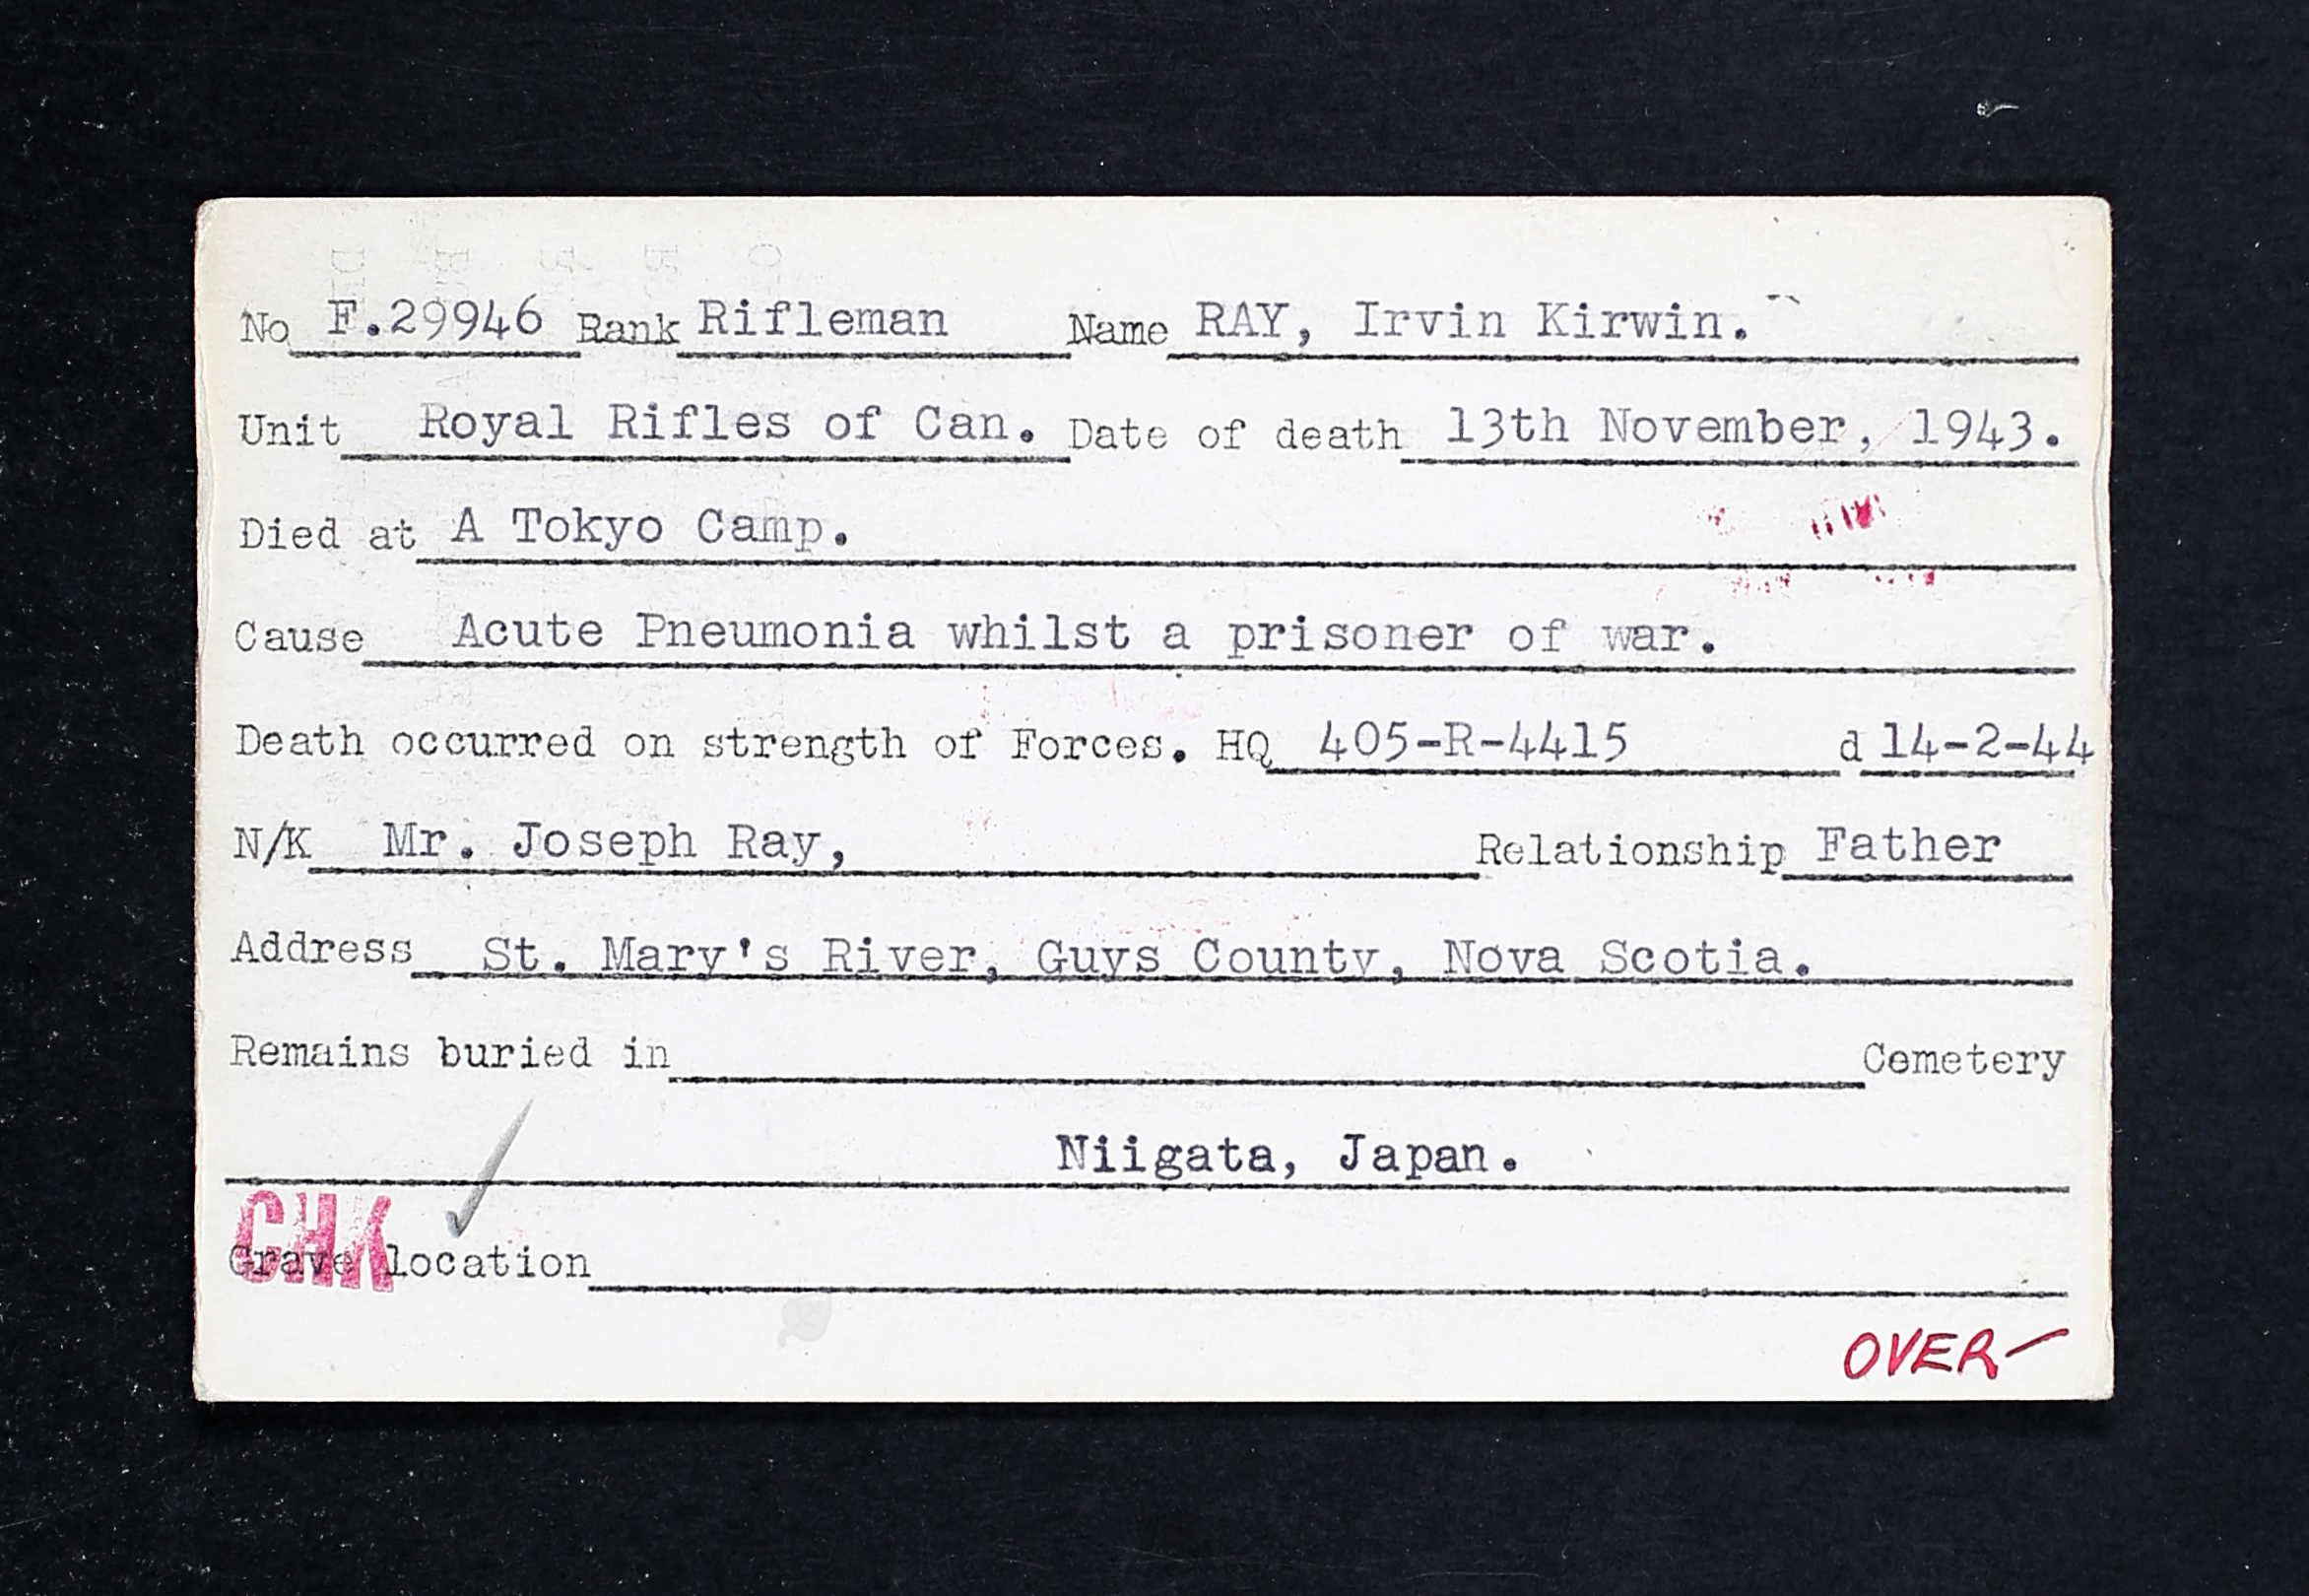 No F.29946 Rank Rifleman Name RAY, Irvin Kirwin.
Unit Royal Rifles of Can. Date of death 13th November, 1943.
Died at A Tokyo Camp.
Cause Acute Pneumonia whilst a prisoner of war.
Death occurred on strength of Forces. HQ 405-R-4415 d 14-2-44
N/K Mr. Joseph Ray, Relationship Father
Address St. Mary's River, Guys County, Nova Scotia.
Remains buried in Cemetery
Niigata, Japan.
CHK
Grave location
OVER-